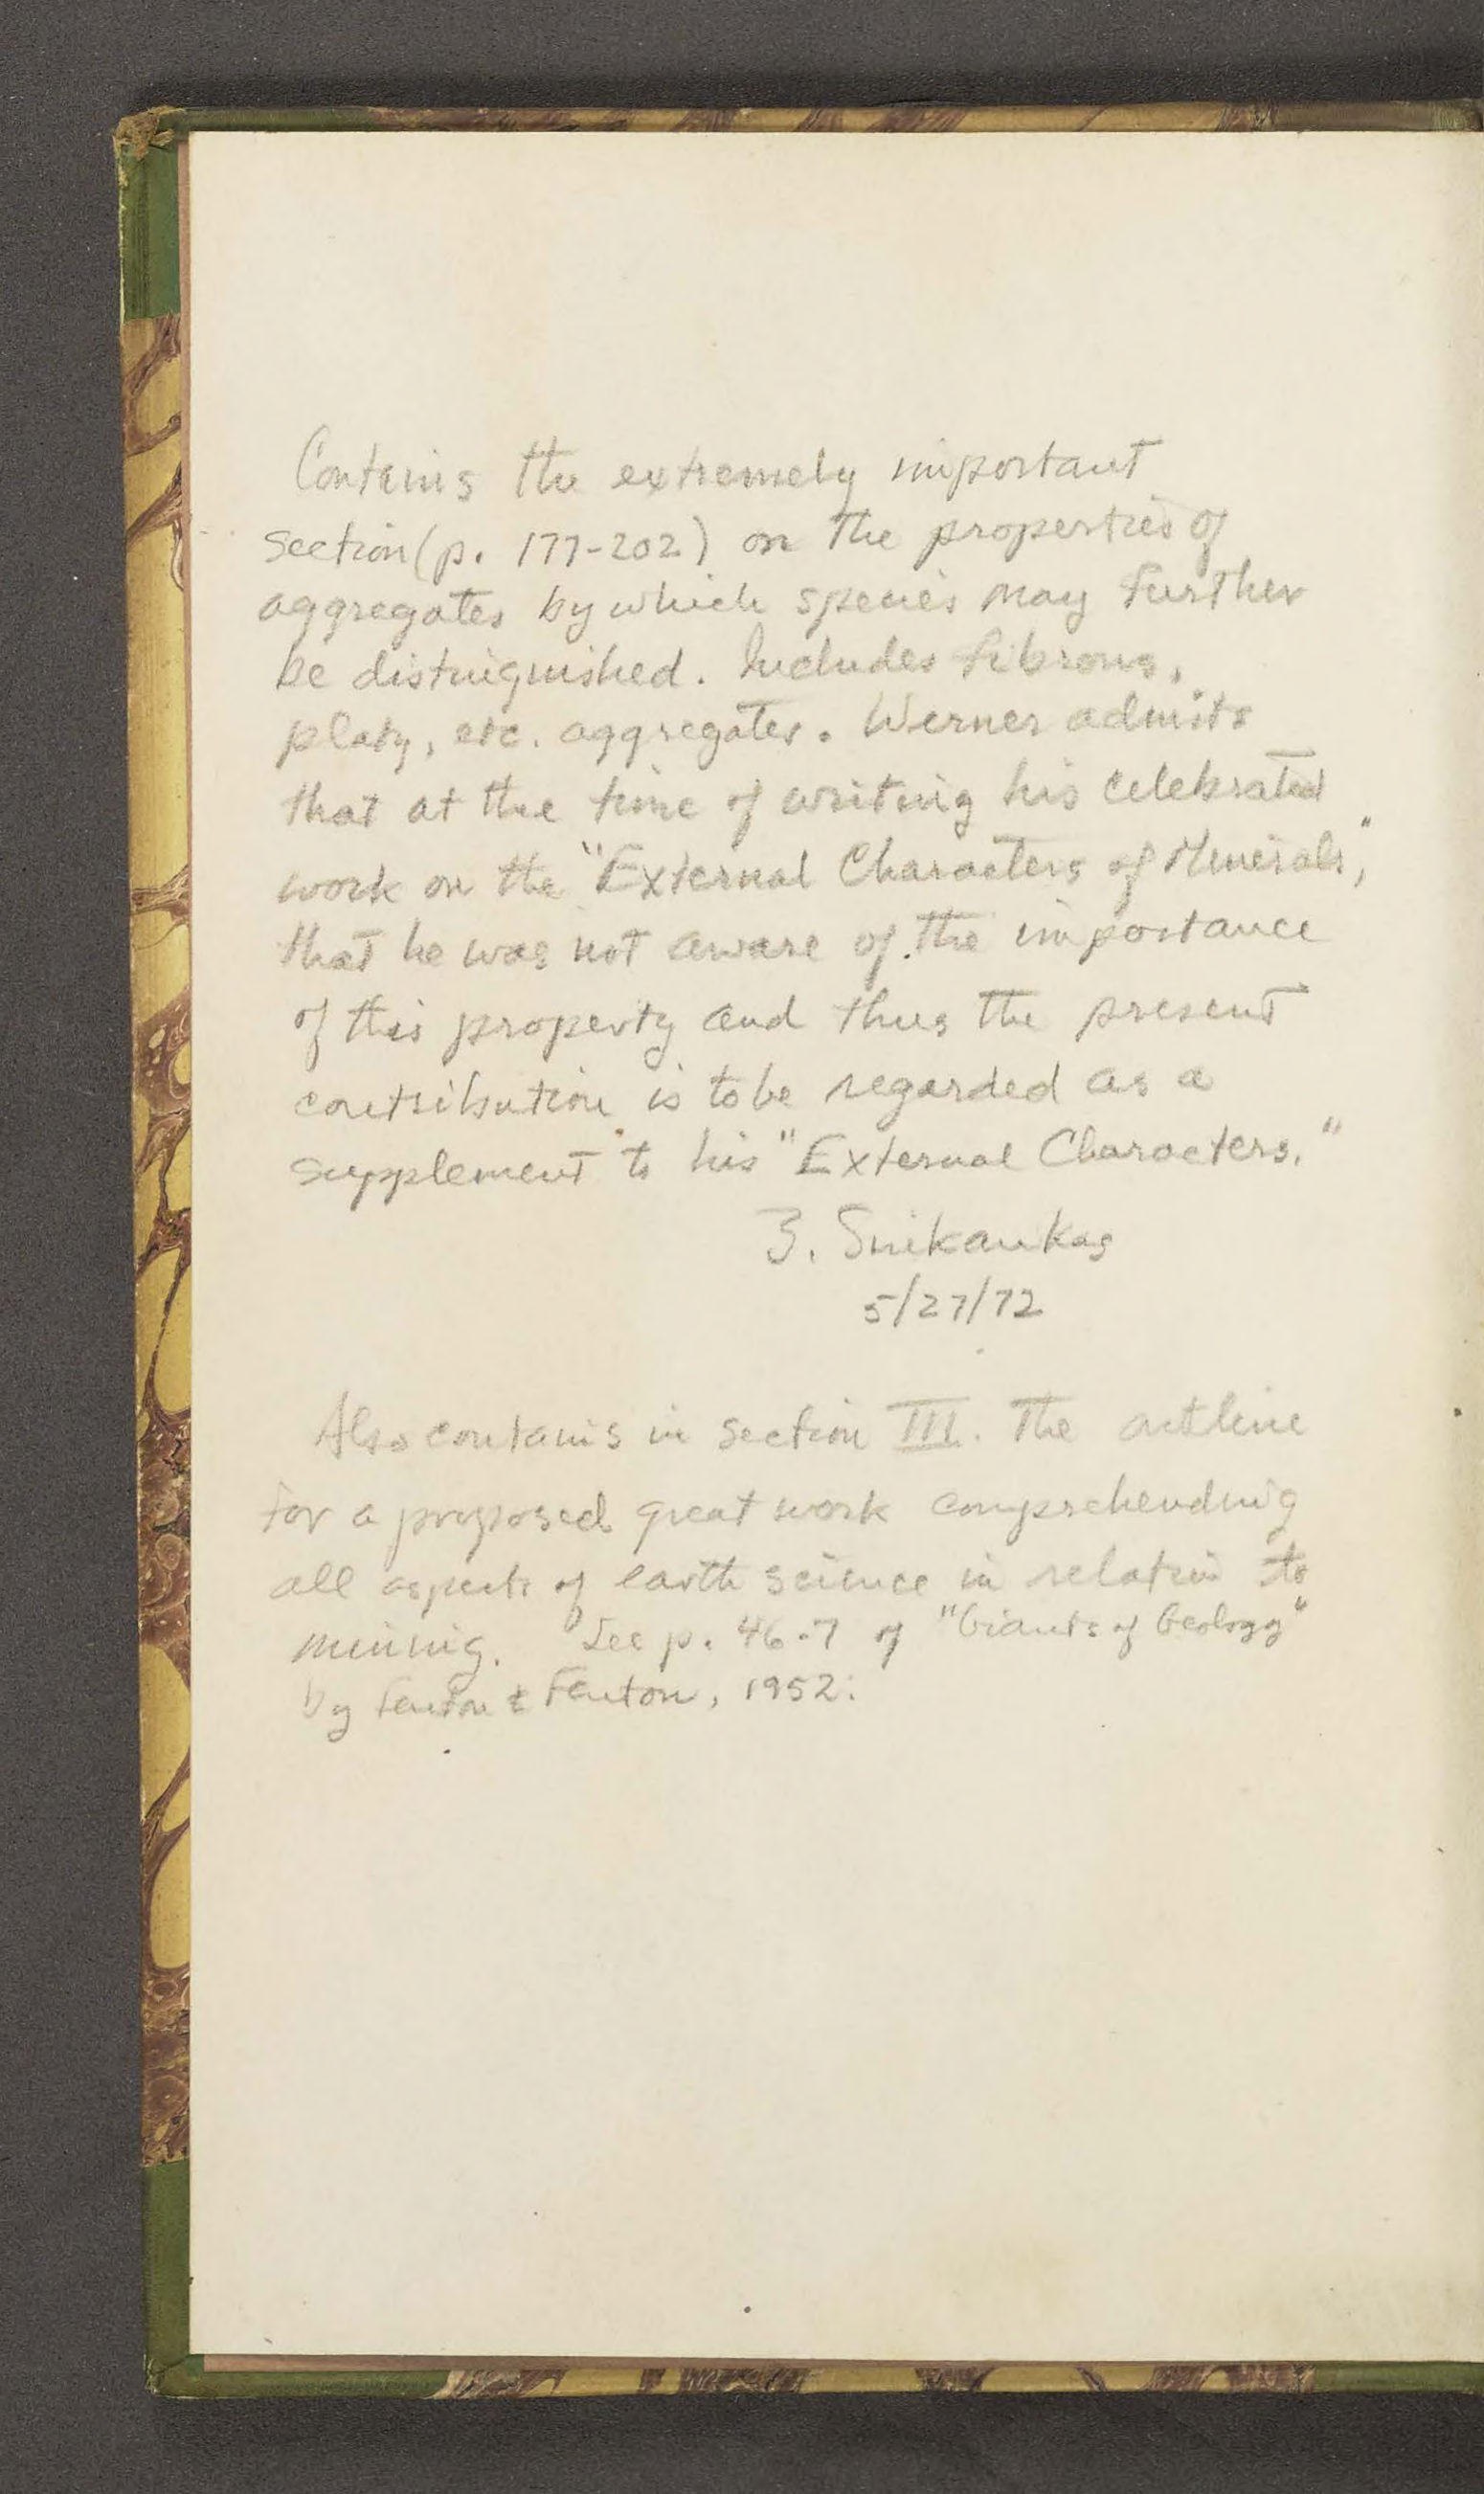 Contains the extremely important
section (p. 177-202) on the properties of
aggregates by which species may further
be distinguished. Includes fibrous,
platy, etc. aggregates. Werner admits
that at the time of writing his celebrated
work on the "External Characters of Minerals",
that he was not aware of the importance
of this property and thus the present
contribution is to be regarded as a
supplement to his "External Characters."
5/27/72
Also contains in section III. The outline
for a proposed great work comprehending
all aspects of earth science in relation to
mining. See p. 46-7 of "Giants of Geology"
by Fenton & Fenton, 1952.